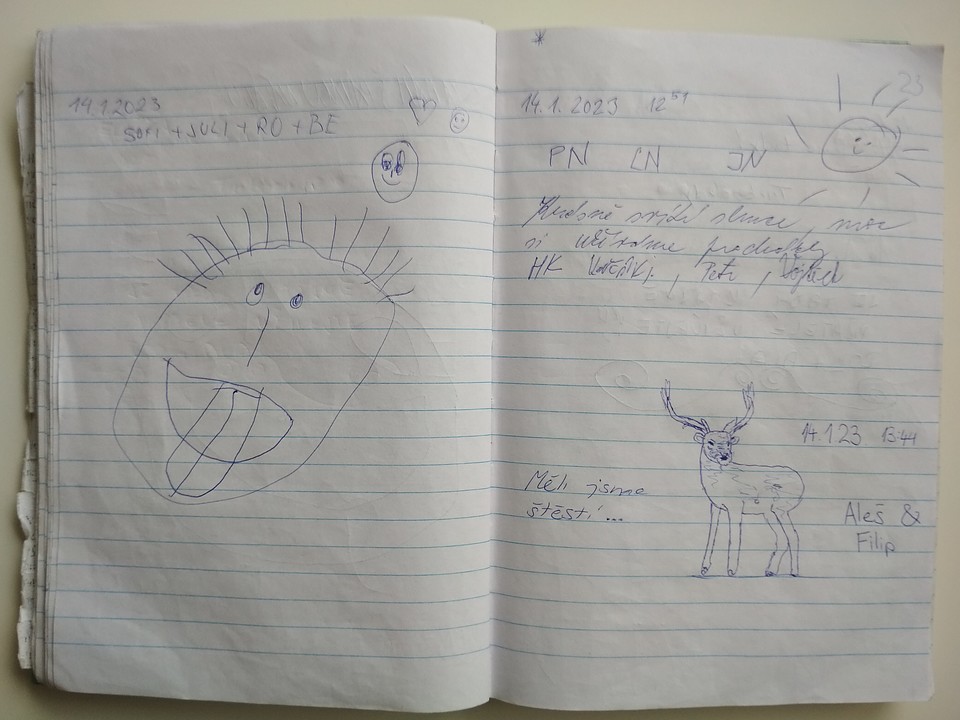 14.1.2023
SOFI + JULI + RO + BE
23
14.1.2023 12⁵¹
PN LN JN
Krásně svítí slunce, moc
si
HK , Petr,
14.1.23 13:44
Měli jsme
štěstí...
Aleš &
Filip